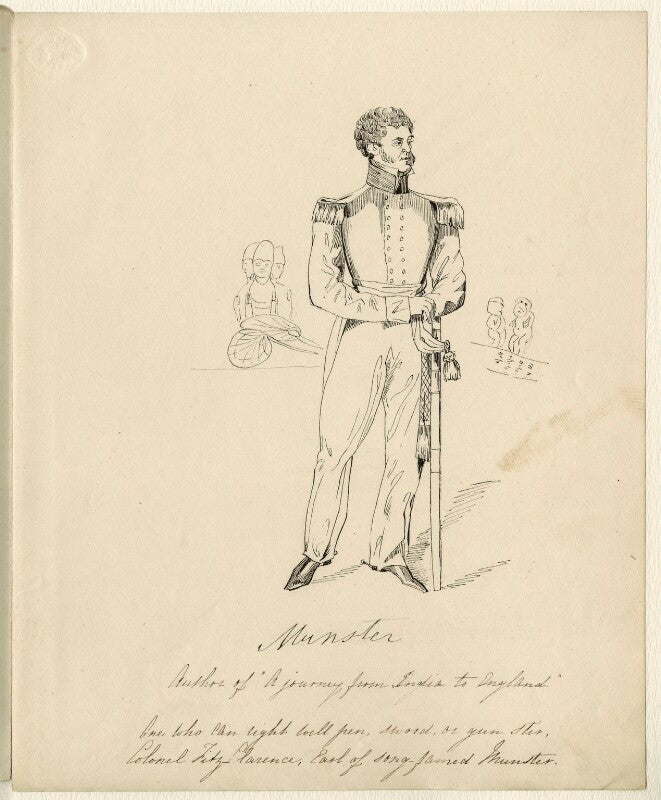 Munster
Author of "A journey from India to England"
One who can right well pen, sword, or gun stir,
Colonel Fitz Clarence, Earl of song-famed Munster.